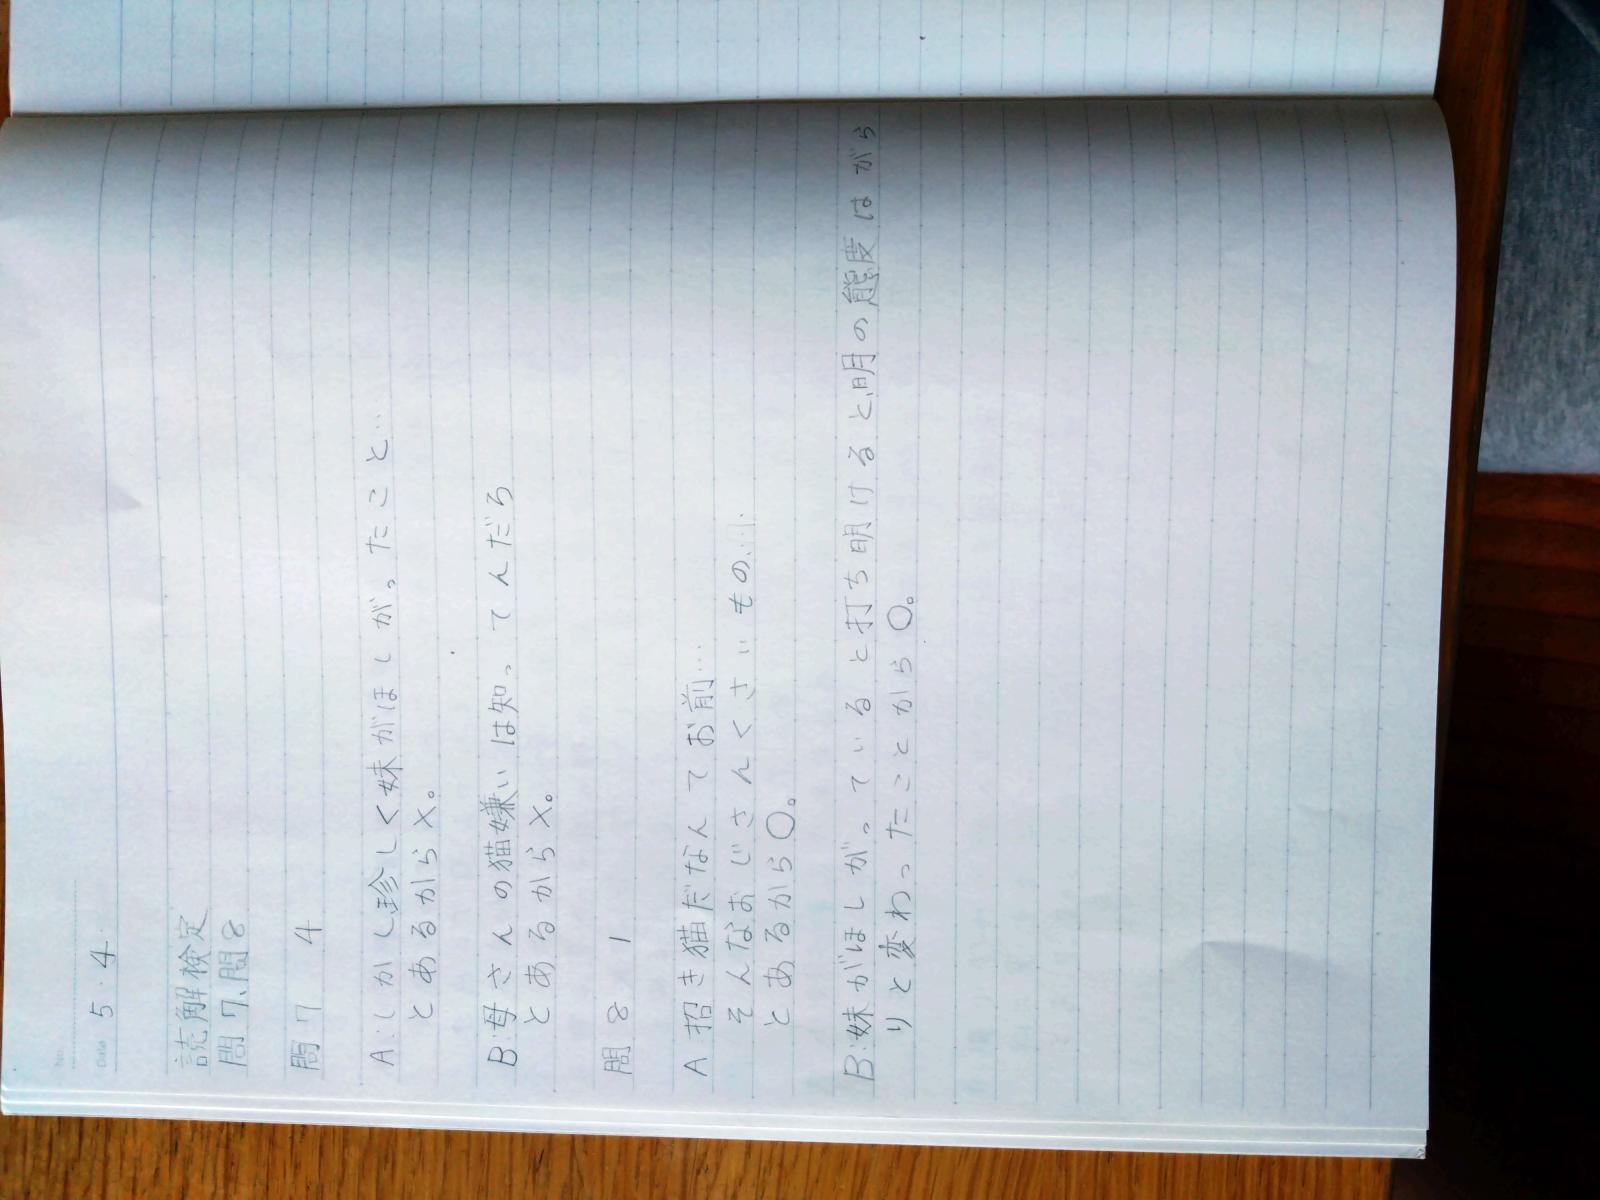 No.
Date 5・4
読解検定
問7、問8
問7 4
A:しかし珍しく妹がほしがったこと…
とあるから×。
B:母さんの猫嫌いは知ってんだろ
とあるから×。
問8 1
A 招き猫だなんてお前…
そんなおじさんくさいもの……
とあるから○。
B:妹がほしがっていると打ち明けると、明の態度はがら
りと変わったことから○。